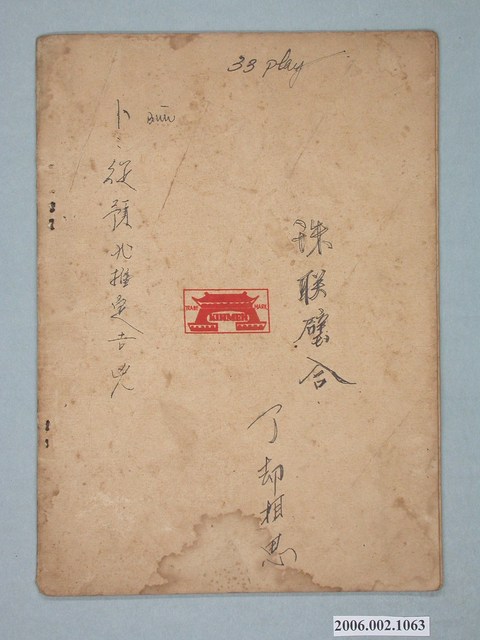 33 play
珠联璧合
了却相思
卜:從預兆推定吉兇
TRADE MARK
2006.002.1063